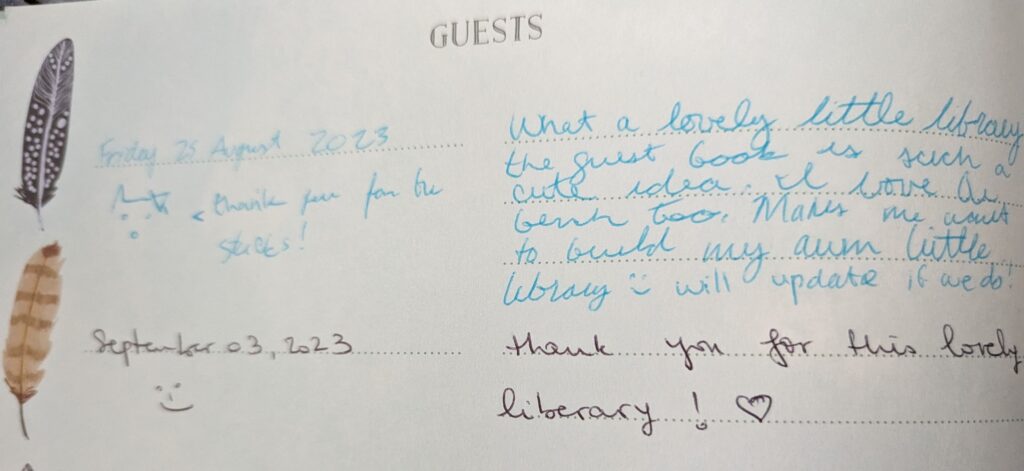 GUESTS
Friday 25 August 2023
thank you for the
sticks!
What a lovely little library
the guest book is such a
cute idea. I love the
bench too. Makes me want
to build my own little
library will update if we do!
September 03, 2023
thank you for this lovely
liberary !